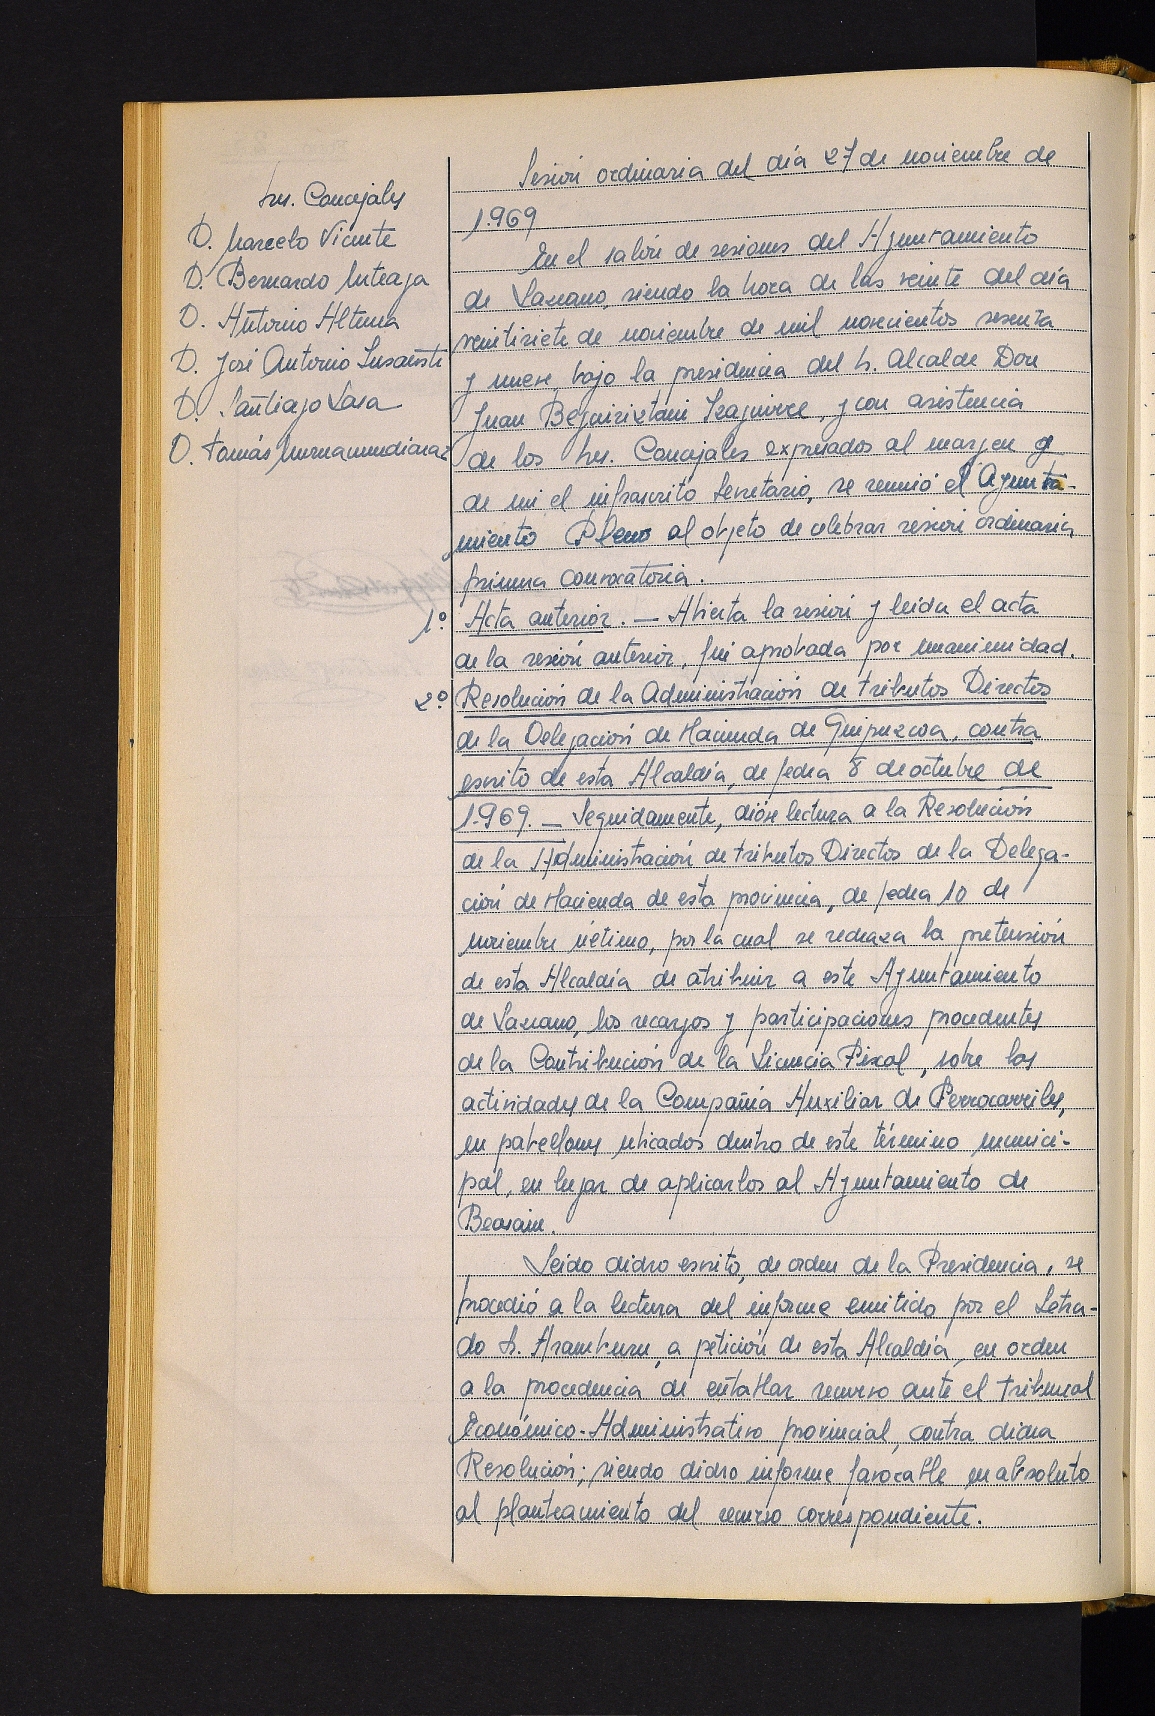 Sesión ordinaria del día 27 de noviembre de
1.969
Srs. Concejales
D. Marcelo Vicente
D. Bernardo Urteaga
D. Antonio Altuna
D. José Antonio
D. Santiago Lasa
D. Tomás
En el salón de sesiones del Ayuntamiento
de Lazcano, siendo la hora de las veinte del día
veintisiete de noviembre de mil novecientos sesenta
y nueve, bajo la presidencia del Sr. Alcalde Don
Juan Beguiristain Izaguirre, y con asistencia
de los Srs. Concejales expresados al margen y
de mi el infrascrito Secretario, se reunió el Ayunta-
miento Pleno al objeto de celebrar sesión ordinaria
primera convocatoria.
1º Acta anterior. — Abierta la sesión y leida el acta
de la sesión anterior, fué aprobada por unanimidad.
2º Resolución de la Administración de Tributos Directos
de la Delegación de Hacienda de Guipuzcoa, contra
escrito de esta Alcaldía, de fecha 8 de octubre de
1.969. — Seguidamente, dióse lectura a la Resolución
de la Administración de Tributos Directos de la Delega-
ción de Hacienda de esta provincia, de fecha 10 de
noviembre último, por la cual se rechaza la pretensión
de esta Alcaldía de atribuir a este Ayuntamiento
de Lazcano, los recargos y participaciones procedentes
de la Contribución de la Licencia Fiscal, sobre las
actividades de la Compañía Auxiliar de Ferrocarriles,
en pabellones ubicados dentro de este término munici-
pal, en lugar de aplicarlos al Ayuntamiento de
Beasain.
Leido dicho escrito, de orden de la Presidencia, se
procedió a la lectura del informe emitido por el Letra-
do Sr. Aramburu, a petición de esta Alcaldía, en orden
a la procedencia de entablar recurso ante el Tribunal
Económico-Administrativo provincial, contra dicha
Resolución; siendo dicho informe favorable en absoluto
al planteamiento del recurso correspondiente.